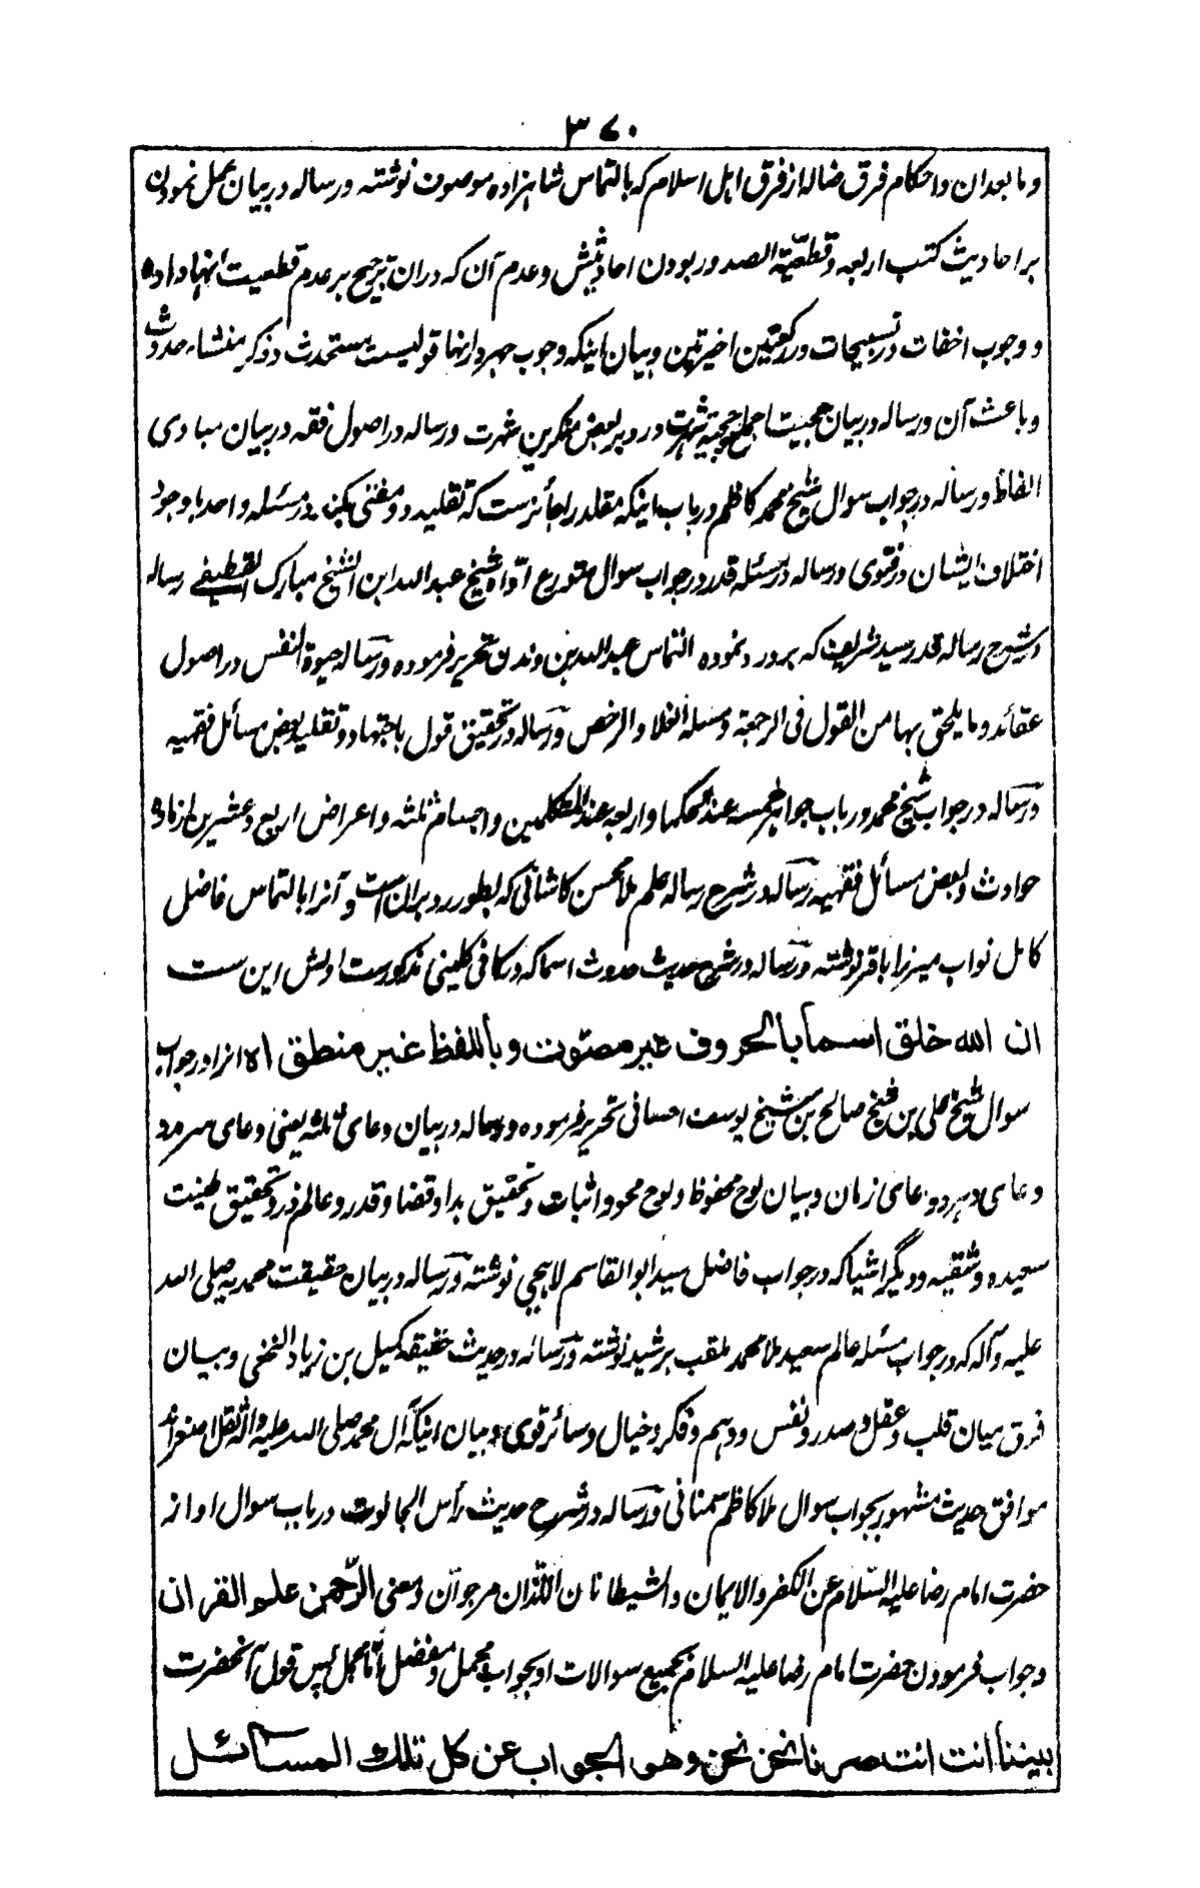 ۳۷۰
و ما بعد ان و احکام فرق ضاله از فرق اهل اسلام که بالتماس شاهزاده موصوف نوشته و رساله در بیان عمل نمودن
بر احادیث کتب اربعه و قطعیة الصدور بودن احادیثش و عدم آن که در ان ترجیح بر عدم قطعیت انها داده
و وجوب اخفات در تسبیحات و رکعتین اخیرتین و بیان اینکه وجوب جهر در انها قولیست مستحدث و ذکر منشاء حدوث
و باعث آن و رساله در بیان حجیت اجماع و حجیة شهرت و رد بر بعض منکرین شهرت و رساله در اصول فقه در بیان مبادی
الفاظ و رساله در جواب سوال شیخ محمد کاظم در باب اینکه مقلد را جائزست که تقلید دو مفتی بکند در مسئله واحد با وجود
اختلاف ایشان در فتوی و رساله در مسئله قدر در جواب سوال متورع اواه شیخ عبد الله ابن الشیخ مبارک القطیفے رساله
در شرح رساله قدر سید شریف که برو رد نموده التماس عبد الله بن وندق تحریر فرموده و رساله حیوة النفس در اصول
عقائد و ما یلحق بها من القول فی الرجعة و مسئله الغلا و الرخص و رساله در تحقیق قول باجتهاد و تقلید و بعض مسائل فقهیه
و رساله در جواب شیخ محمد در باب جواهر خمسه عند الحکما و اربعه عند المتکلمین و اجسام ثلثه و اعراض اربع و عشرین از ماده
حوادث و بعض مسائل فقهیه رساله در شرح رساله علم ملا محسن کاشانی که بطور رد بران است و آنرا بالتماس فاضل
کامل نواب میرزا باقر نوشته و رساله در شرح حدیث حدوث اسما که در کافی کلینی مذکورست اولش این ست
ان الله خلق اسما بالحروف غیر مصوت و باللفظ غیر منطق اه انرا در جواب
سوال شیخ علی بن شیخ صالح بن شیخ یوسف احسائی تحریر فرموده و رساله در بیان وعای ثلثه یعنی وعای سرمد
وعای دهر و وعای زمان و بیان لوح محفوظ و لوح محو و اثبات و تحقیق بدا و قضا و قدر و عالم ذر و تحقیق طینت
سعیده و شقیه و دیگر اشیا که در جواب فاضل سید ابو القاسم لاهیجی نوشته و رساله در بیان حقیقت محمدیه صلی الله
علیه و آله که در جواب مسئله عالم سعید ملا محمد ملقب برشید نوشته و رساله در حدیث حقیقه کمیل بن زیاد النخعی و بیان
فرق میان قلب و عقل و صدر و نفس و وهم و فکر و خیال و سائر قوی و بیان اینکه آل محمد صلی الله علیه و اله ثقل اصغراند
موافق حدیث مشهور بجواب سوال ملا کاظم سمنانی و رساله در شرح حدیث رأس الجالوت در باب سوال او از
حضرت امام رضا علیه السلام عن الکفر و الایمان و الشیطانان اللذان مرجوان و معنی الرحمن علم القران
و جواب فرمودن حضرت امام رضا علیه السلام بجمیع سوالات او بجواب مجمل و مفصل اما مجمل پس قول آنحضرت
بیننا انت انت صرنا نحن نحن وهو الجواب عن کل تلك المسائل